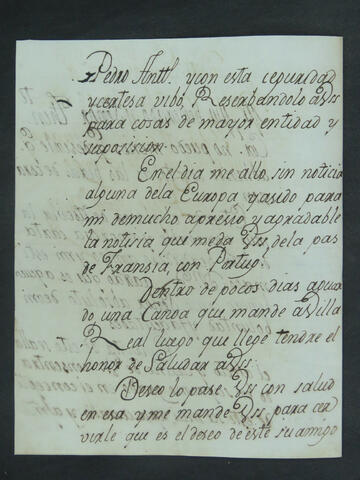 Pedro Antt.º y con esta ceguridad
y certesa vibó, Reserbandolo a Vs
para cosas de mayor entidad y
suposision.
En el dia me allo, sin noticia
alguna de la Europa y asido para
mi de mucho apresio y agradable
la notisia que me da Vs, de la pas
de Fransia, con Portug.l
Dentro de pocos dias aguar
do una Canoa que mande a Villa
Real luego que llege tendre el
honor de Saludar a Vs:
Deseo lo pase Vs con salud
en esa, y me mande Vs para cer
virle que es el deseo de este su amigo